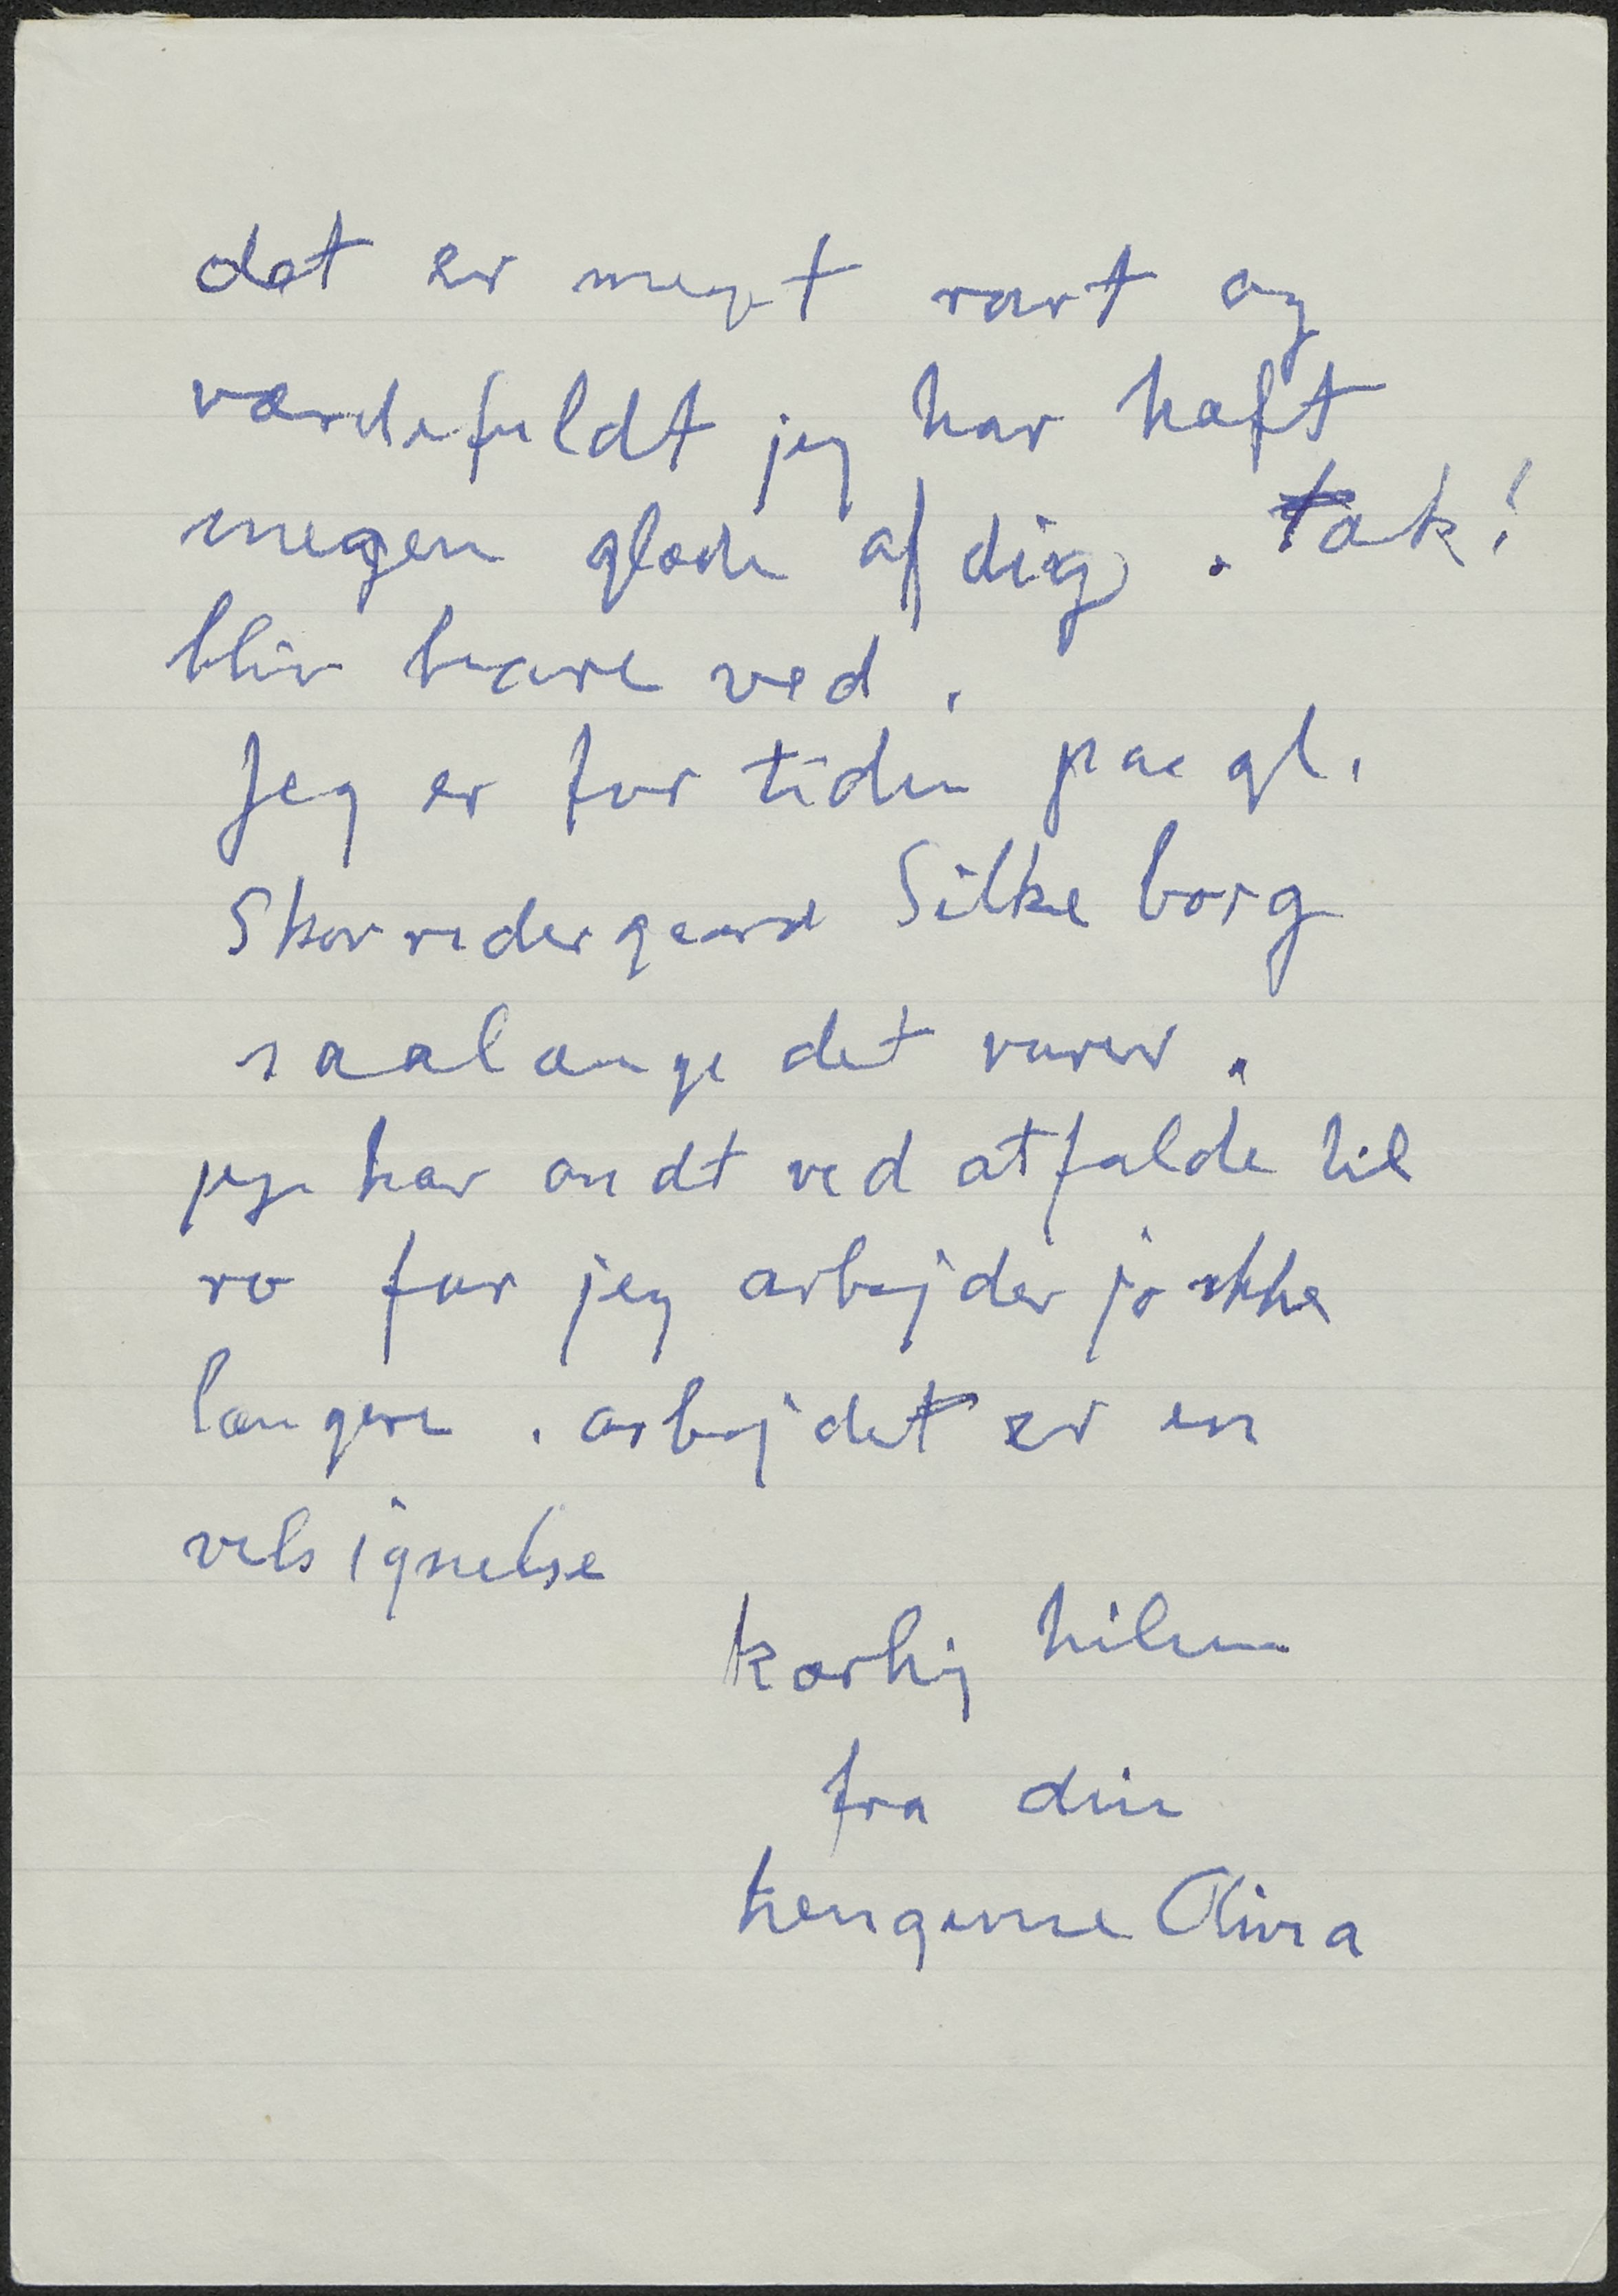 det er meget rart og
værdefuldt jeg har haft
megen glæde af dig. Tak!
bliv bare ved.
Jeg er for tiden paa gl.
Skovridergaard Silkeborg
saalænge det varer.
jeg har ondt ved at falde til
ro for jeg arbejder jo ikke
længere. arbejdet er en
velsignelse
kærlig hilsen
fra din
hengivne Olivia